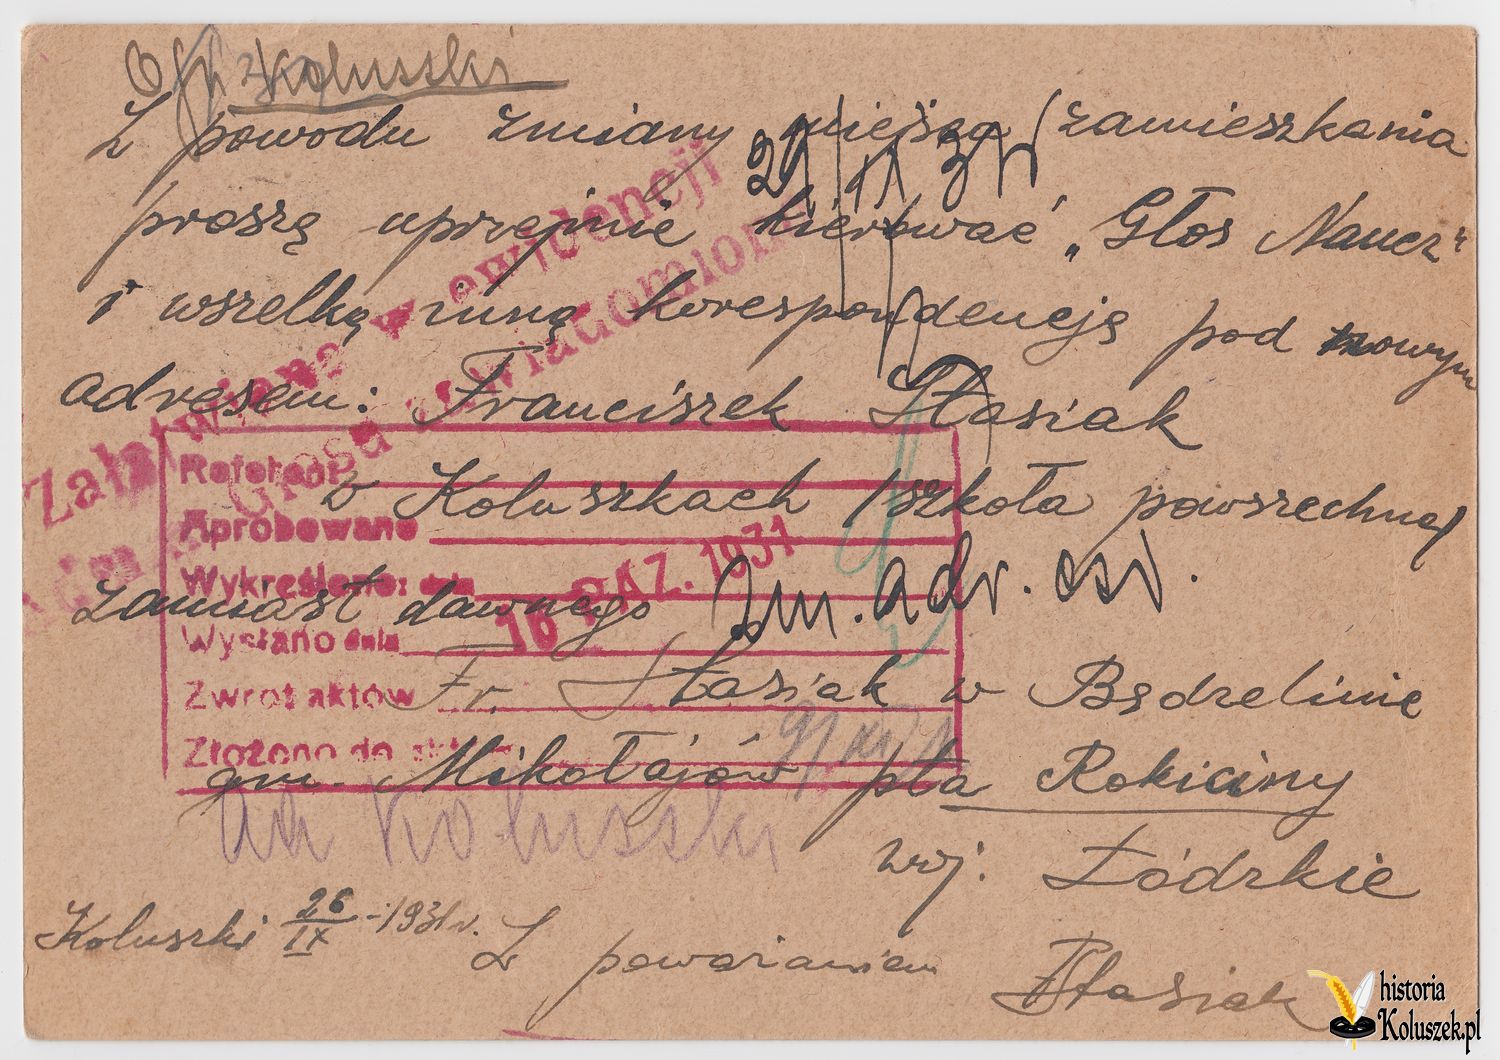 Koluszki
Z powodu zmiany miejsca zamieszkania
proszę uprzejmie kierować „Głos Naucz"
i wszelką inną korespondencję pod nowym
adresem: Franciszek Stasiak
w Koluszkach /szkoła powszechna/
zamiast dawnego zm. adr.
Fr. Stasiak w Będzelinie
gm. Mikołajów pta Rokiciny
woj. Łódzkie
Koluszki 26/IX - 1931 r. Z poważaniem
FStasiak
Załatwiono w ewidencji
Głosu zawiadomiono
Referent
Aprobowano
Wykreślono: dnia
16 PAŹ. 1931
Wysłano dnia
Zwrot aktów
Złożono do
Koluszki
historia
Koluszek.pl